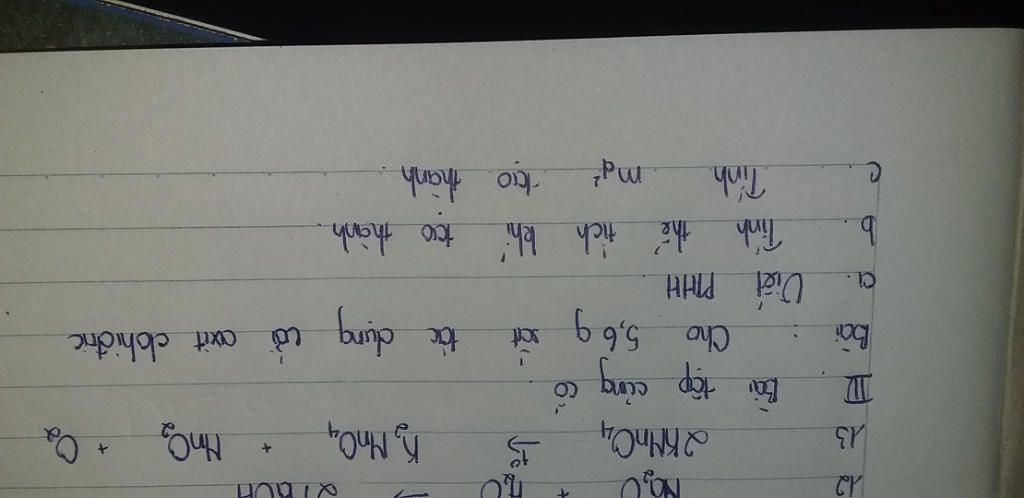 12 Na2O + H2O → 2NaOH
13 2KMnO4 t°→ K2MnO4 + MnO2 + O2
III. Bài tập củng cố
Bài : Cho 5,6 g sắt tác dụng với axit clohiđric
a. Viết PTHH
b. Tính thể tích khí tạo thành.
c. Tính m tạo thành.